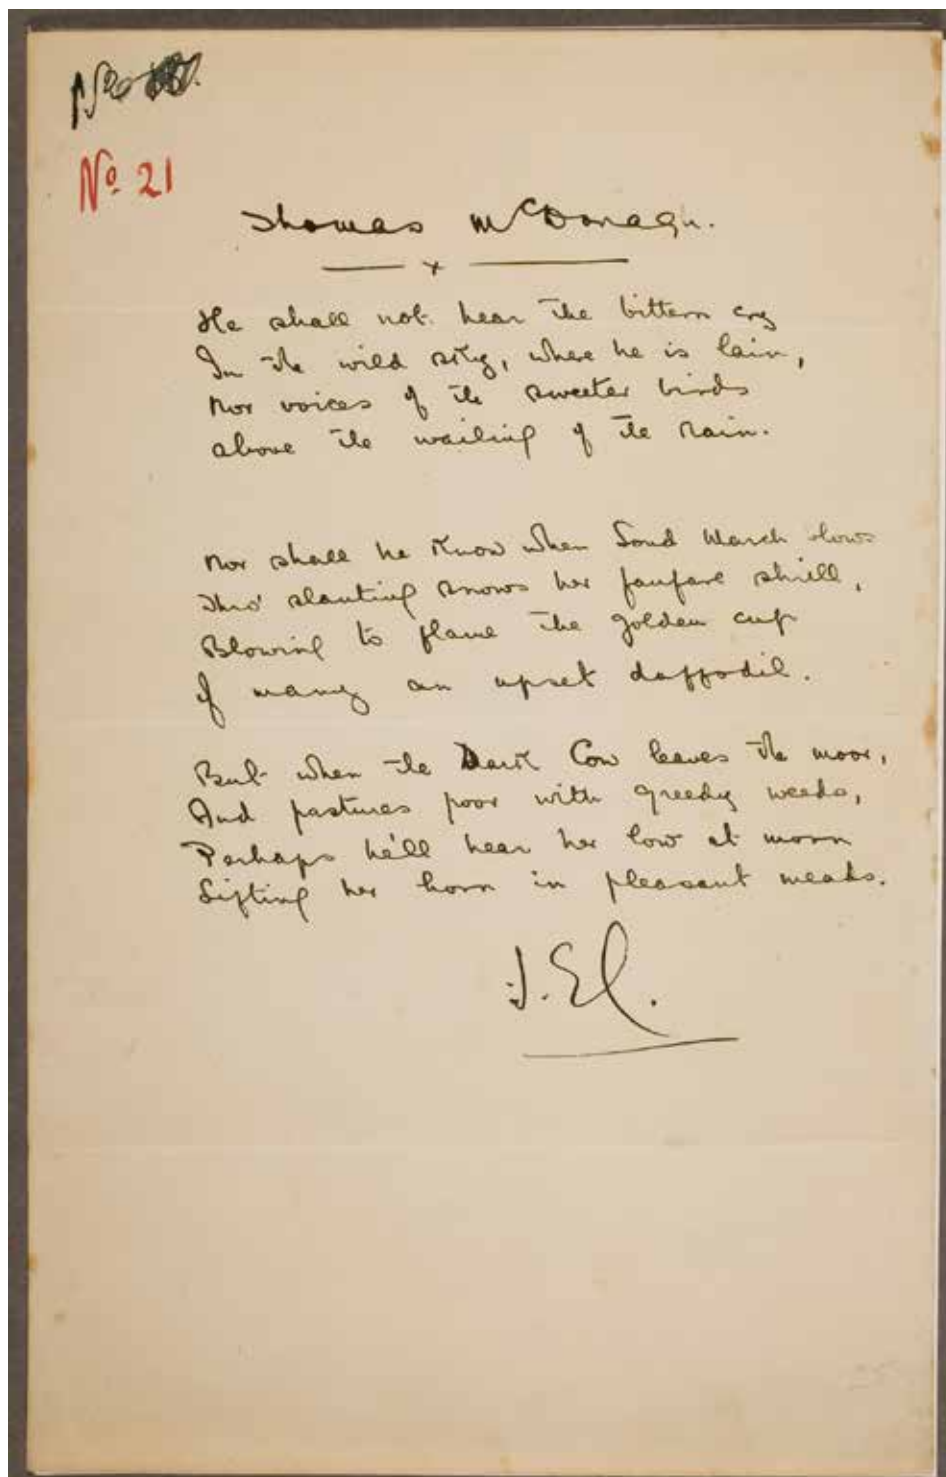 No
No. 21
Thomas McDonagh.
x
He shall not hear the bittern cry
In the wild sky, where he is lain,
Nor voices of the sweeter birds
above the wailing of the rain.
Nor shall he know when loud March blows
Thro' slanting snows her fanfare shrill,
Blowing to flame the golden cup
Of many an upset daffodil.
But when the Dark Cow leaves the moor,
And pastures poor with greedy weeds,
Perhaps he'll hear her low at morn
Lifting her horn in pleasant meads.
25